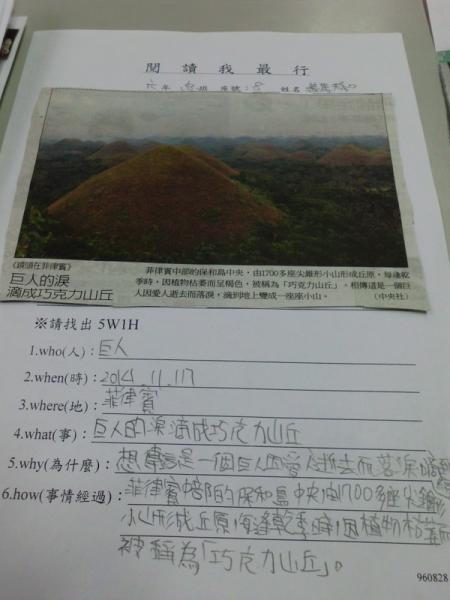 閱讀我最行
六年 班 座號:8 姓名
《鏡頭在菲律賓》
巨人的淚
滴成巧克力山丘
菲律賓中部的保和島中央,由1700多座尖錐形小山形成丘原,每逢乾
季時,因植物枯萎而呈褐色,被稱為「巧克力山丘」。相傳這是一個巨
人因愛人逝去而落淚,滴到地上變成一座座小山。 (中央社)
※請找出 5W1H
1.who(人):巨人
2.when(時):2014.11.17
3.where(地):菲律賓
4.what(事):巨人的淚滴成巧克力山丘
5.why(為什麼):想傳這是一個巨人因愛人逝去而落淚
6.how(事情經過):菲律賓中部的保和島中央由1700多座尖錐形
小山形成丘原,每逢乾季時,因植物枯萎而
被稱為「巧克力山丘」。
960828